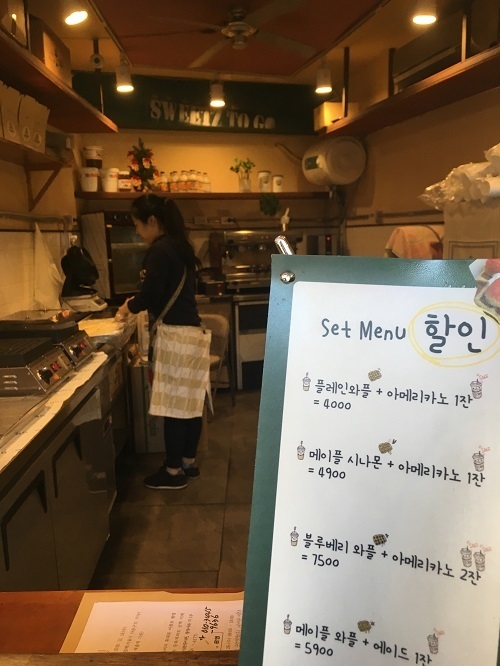 SWEETZ TO GO
Set Menu 할인
플레인와플 + 아메리카노 1잔
= 4000
메이플 시나몬 + 아메리카노 1잔
= 4900
블루베리 와플 + 아메리카노 2잔
= 7500
메이플 와플 + 에이드 1잔
= 5900